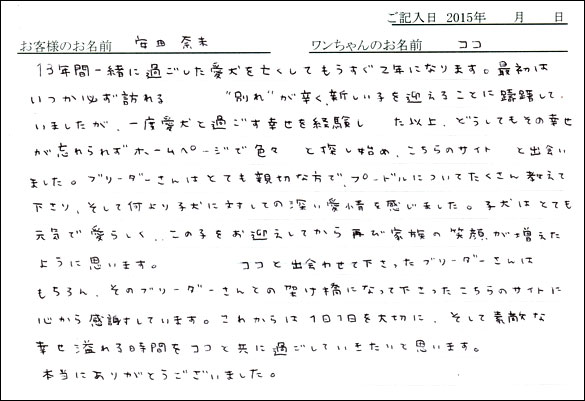 ご記入日 2015年 月 日
お客様のお名前 安田 奈未 ワンちゃんのお名前 ココ
13年間一緒に過ごした愛犬を亡くしてもうすぐ2年になります。最初は
いつか必ず訪れる "別れ"が辛く、新しい子を迎えることに躊躇して
いましたが、一度愛犬と過ごす幸せを経験し た以上、どうしてもその幸せ
が忘れられずホームページで色々 と探し始め、こちらのサイト と出会い
ました。ブリーダーさんはとても親切な方で、プードルについてたくさん教えて
下さり、そして何より子犬に対しての深い愛情を感じました。子犬はとても
元気で愛らしく、この子をお迎えしてから再び家族の笑顔が増えた
ように思います。 ココと出会わせて下さったブリーダーさんは
もちろん、そのブリーダーさんとの架け橋になって下さったこちらのサイトに
心から感謝しています。これからは1日1日を大切に、そして素敵な
幸せ溢れる時間をココと共に過ごしていきたいと思います。
本当にありがとうございました。